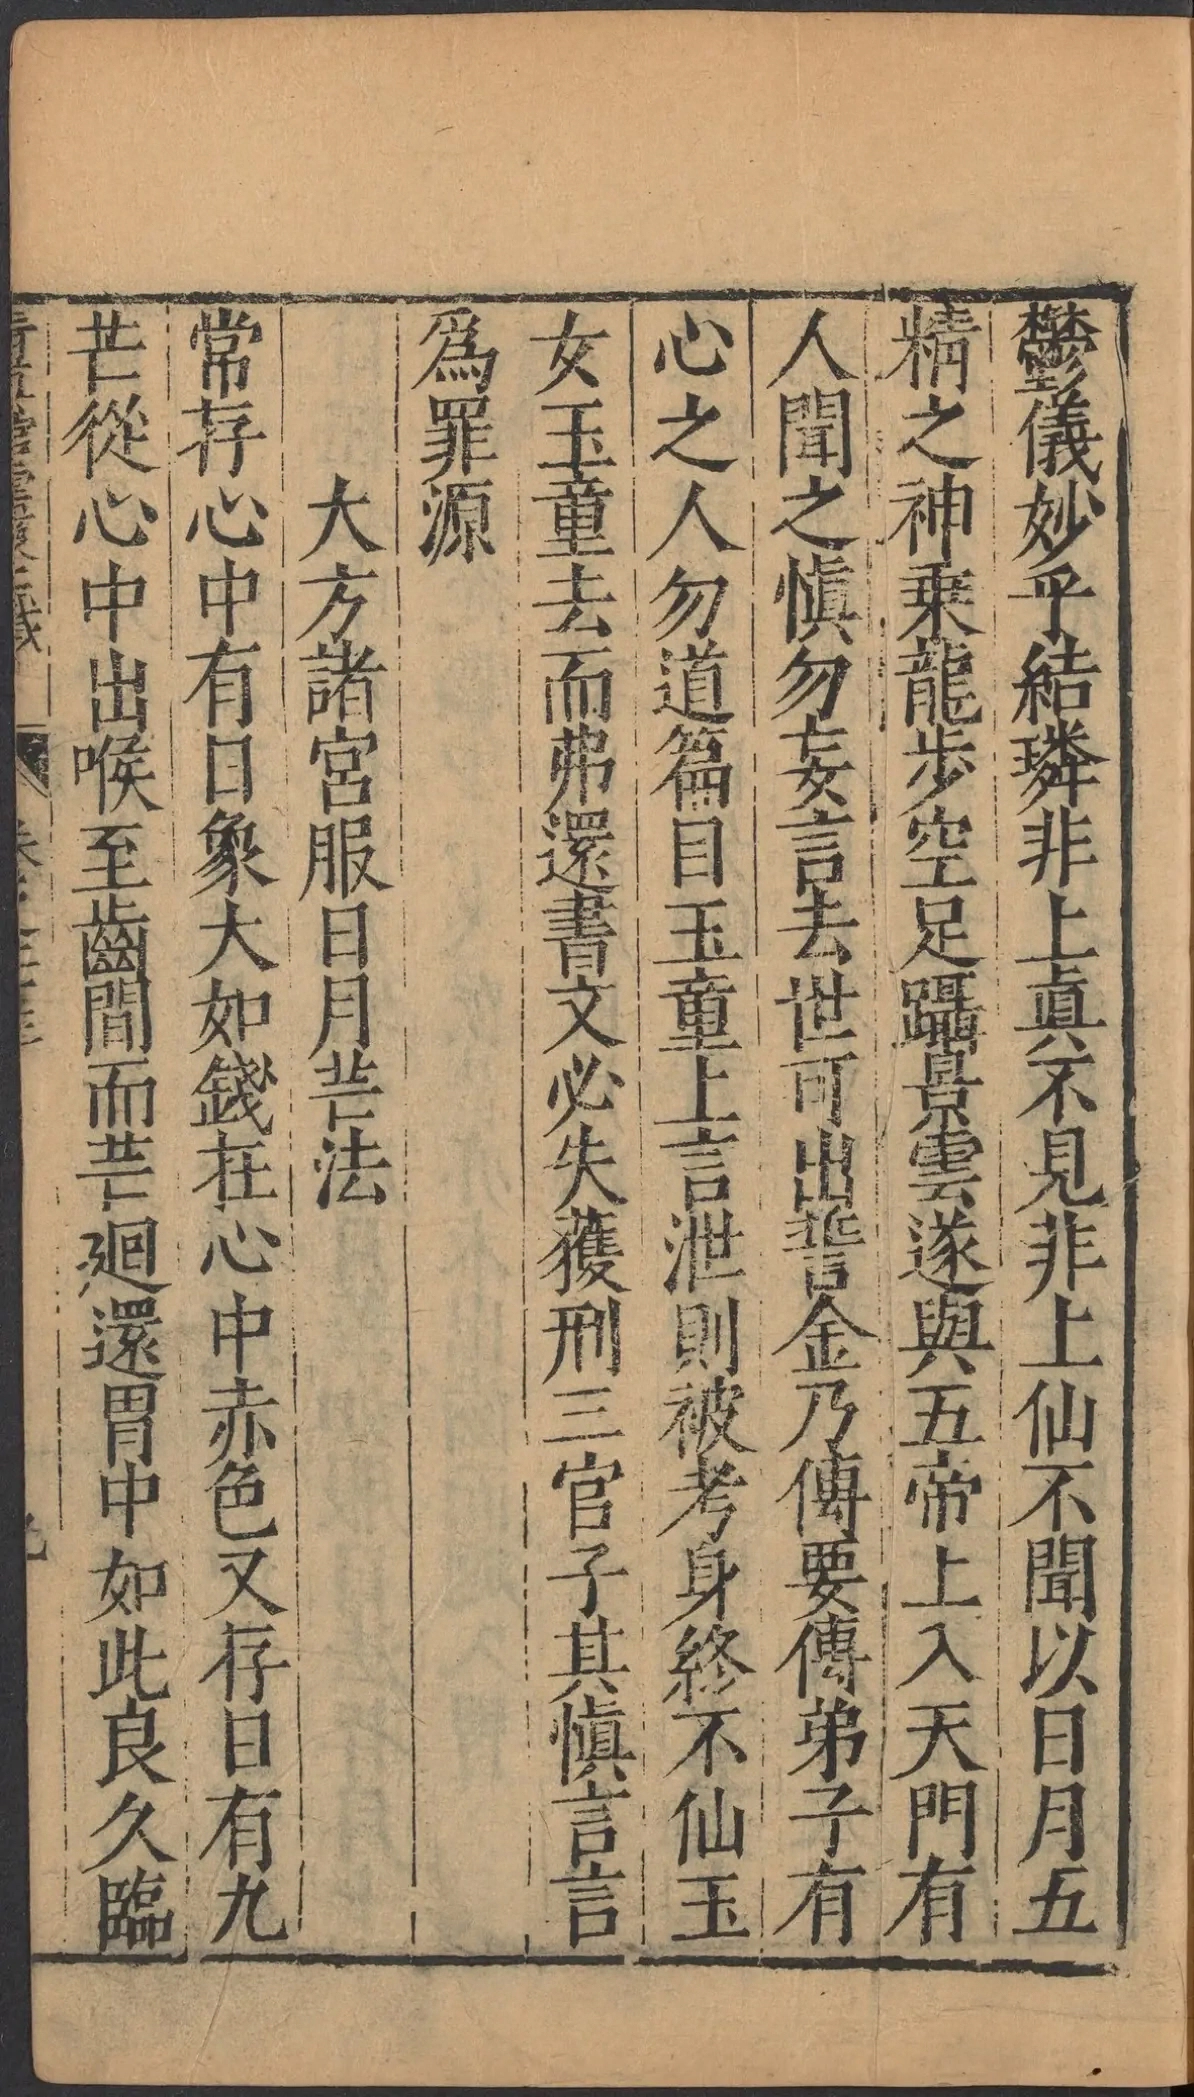 鬱儀妙乎結璘非上眞不見非上仙不聞以日月五
精之神乘龍步空足躡景雲遂與五帝上入天門有
人聞之愼勿妄言去世可出誓金乃傳要傳弟子有
心之人勿道篇目玉童上言泄則被考身終不仙玉
女玉童去而弗還書文必失獲刑三官子其愼言言
爲罪源
大方諸宮服日月芒法
常存心中有日象大如錢在心中赤色又存日有九
芒從心中出喉至齒間而芒迴還胃中如此良久臨